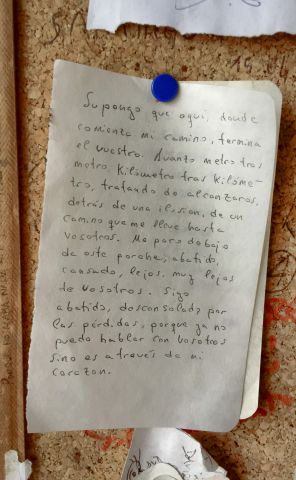 Supongo que aqui, donde
comienza mi camino, termina
el vuestro. Avanzo metro tras
metro, Kilómetro tras Kilóme-
tro, tratando de alcanzaros,
detrás de una ilusion, de un
camino que me lleve hasta
vosotros. Me paro debajo
de este porche, abatido,
cansado, lejos, muy lejos
de vosotros. Sigo
abatido, desconsolado por
las pérdidas, porque ya no
puedo hablar con vosotros
sino es a través de mi
corazon.